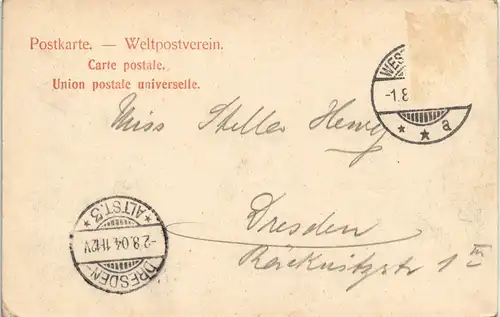 Postkarte. — Weltpostverein.
Carte postale.
Union postale universelle.
WES
-1.8
* * a
Miss Stella
Dresden
1 III
* ALTST.3 *
-2.8.04.11-12V
DRESDEN-